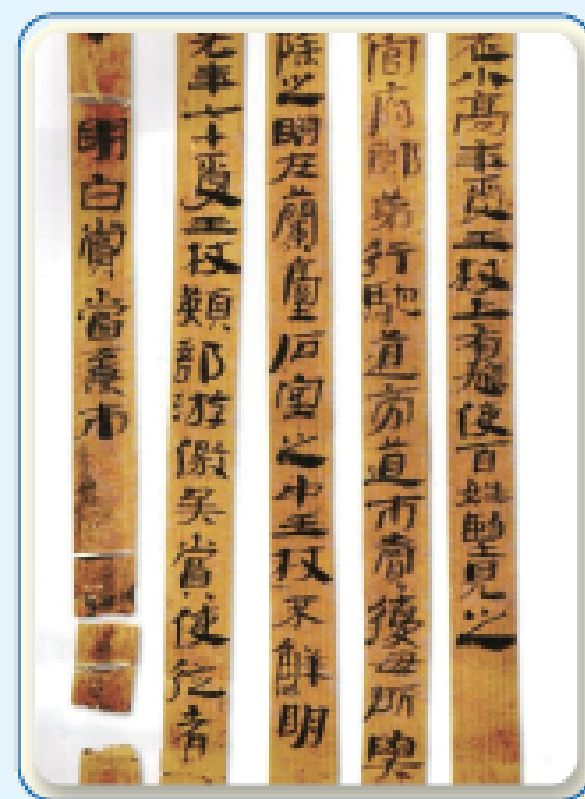 老小高年受王杖上有鳩使百姓望見之
官府郎第行馳道旁道市賣復毋所與
除之明在蘭臺石室之中王杖不鮮明
先年七十受王杖類部游徼吳賞使從者
明白賞當棄市